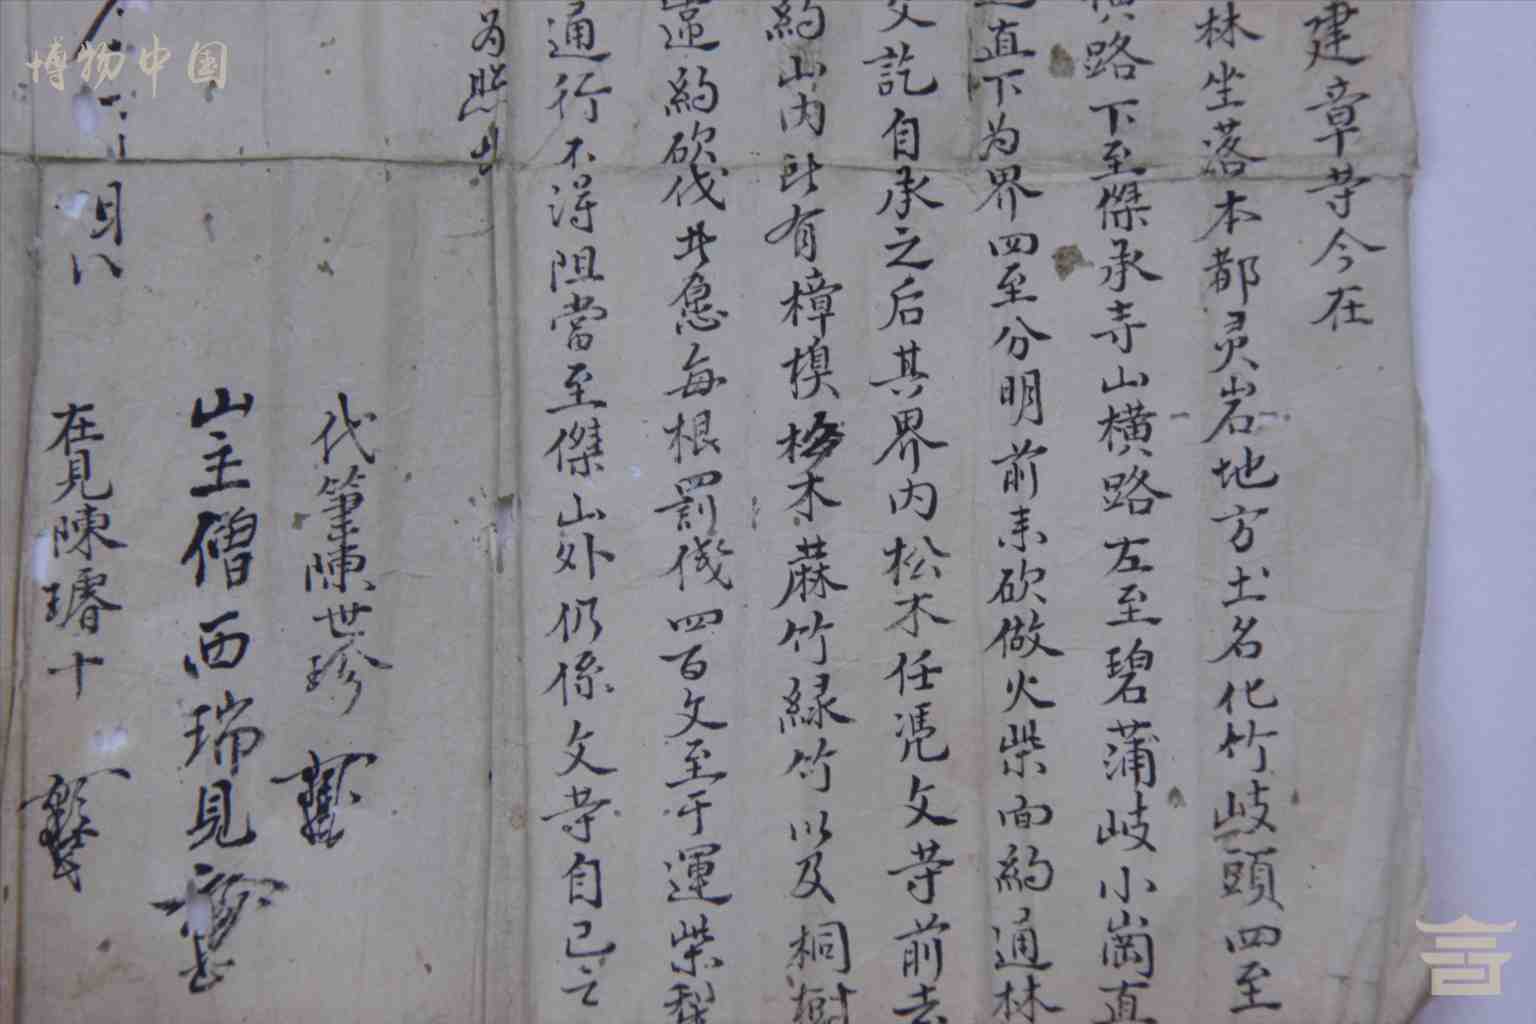 建章等今在
林坐落本都灵岩地方土名化竹岐頭四至
横路下至傑承寺山横路左至碧蒲岐小崗直
直下为界四至分明前未砍做火柴面約通林
文訖自承之后其界内松木任凭文等前去
約山内此有樟模木蔴竹緑竹以及桐樹
違約砍伐其忽每根罰伐四百文至于運柴
通行不得阻當至傑山外仍係文等自己之
为照
代筆陳世珍
山主僧西瑞見
月八
在見陳璿十
博物中国